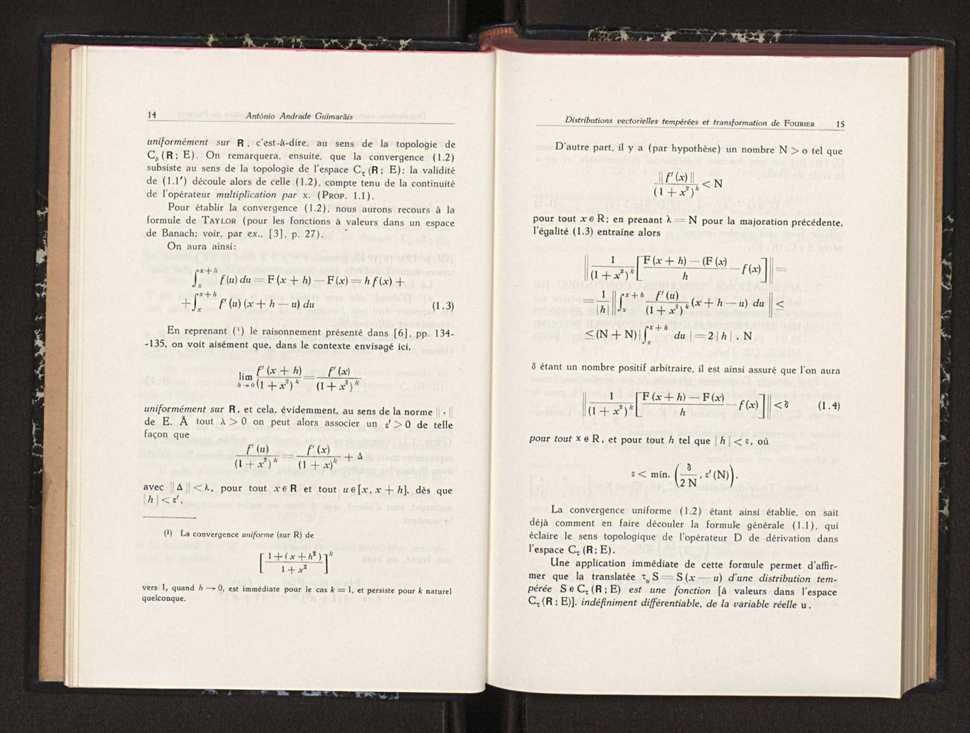 14 António Andrade Guimarãis
uniformément sur R, c'est-à-dire, au sens de la topologie de
C₀(R; E). On remarquera, ensuite, que la convergence (1.2)
subsiste au sens de la topologie de l'espace Cτ(R; E); la validité
de (1.1′) découle alors de celle (1.2), compte tenu de la continuité
de l'opérateur multiplication par x. (Prop. 1.1).
Pour établir la convergence (1.2), nous aurons recours à la
formule de Taylor (pour les fonctions à valeurs dans un espace
de Banach; voir, par ex., [3], p. 27).
On aura ainsi:
∫ₓ^{x+h} f(u) du = F(x + h) — F(x) = h f(x) +
+ ∫ₓ^{x+h} f′(u) (x + h — u) du (1.3)
En reprenant (¹) le raisonnement présenté dans [6], pp. 134-
-135, on voit aisément que, dans le contexte envisagé ici,
lim_{h→0} f′(x + h) / (1 + x²)^k = f′(x) / (1 + x²)^k
uniformément sur R, et cela, évidemment, au sens de la norme ‖ . ‖
de E. À tout λ > 0 on peut alors associer un ε′ > 0 de telle
façon que
f′(u) / (1 + x²)^k = f′(x) / (1 + x)^k + Δ
avec ‖ Δ ‖ < λ, pour tout x ∈ R et tout u ∈ [x, x + h], dès que
| h | < ε′.
(¹) La convergence uniforme (sur R) de
[ 1 + (x + h²) / 1 + x² ]^k
vers 1, quand h → 0, est immédiate pour le cas k = 1, et persiste pour k naturel
quelconque.
Distributions vectorielles tempérées et transformation de Fourier 15
D'autre part, il y a (par hypothèse) un nombre N > o tel que
‖ f′(x) ‖ / (1 + x²)^k < N
pour tout x ∈ R; en prenant λ = N pour la majoration précédente,
l'égalité (1.3) entraîne alors
‖ 1 / (1 + x²)^k [ F(x + h) — (F(x) / h — f(x) ] ‖ =
= 1 / |h| ‖ ∫ₓ^{x+h} f′(u) / (1 + x²)^k (x + h — u) du ‖ ≤
≤ (N + N) | ∫ₓ^{x+h} du | = 2 | h | . N
δ étant un nombre positif arbitraire, il est ainsi assuré que l'on aura
‖ 1 / (1 + x²)^k [ F(x + h) — F(x) / h — f(x) ] ‖ < δ (1.4)
pour tout x ∈ R, et pour tout h tel que | h | < ε, où
ε < min. ( δ / 2 N , ε′(N) ).
La convergence uniforme (1.2) étant ainsi établie, on sait
déjà comment en faire découler la formule générale (1.1), qui
éclaire le sens topologique de l'opérateur D de dérivation dans
l'espace Cτ(R; E).
Une application immédiate de cette formule permet d'affir-
mer que la translatée τᵤ S = S(x — u) d'une distribution tem-
pérée S ∈ Cτ(R; E) est une fonction [à valeurs dans l'espace
Cτ(R; E)], indéfiniment différentiable, de la variable réelle u.